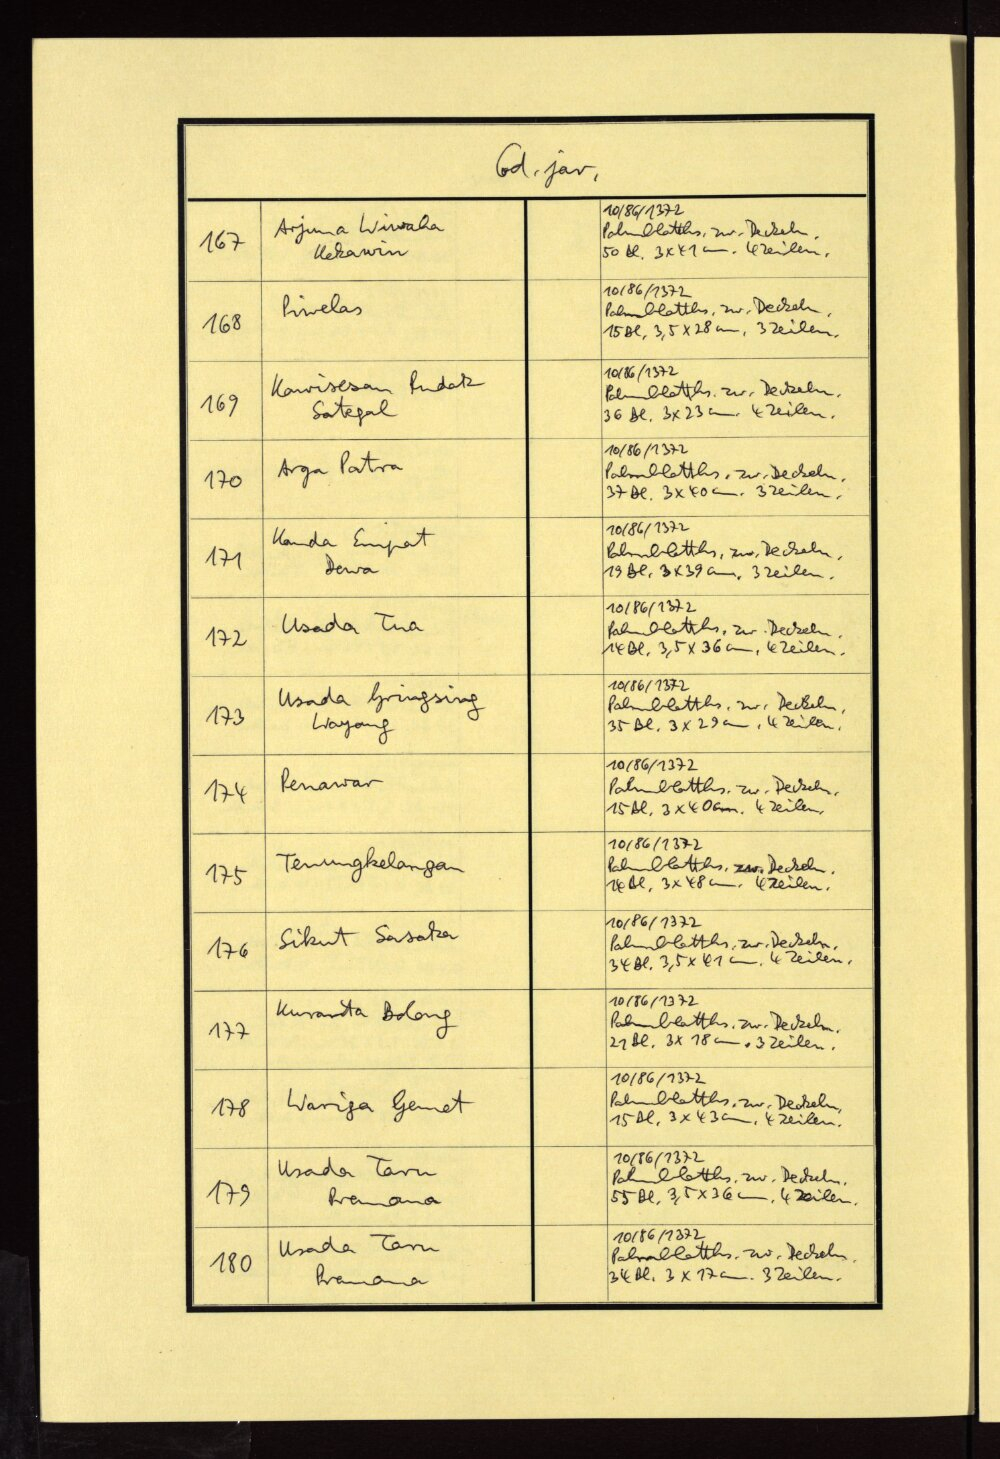 Cod. jav.
167
Arjuna Wiwaha
Kekawin
10/86/1372
Palmblatths. zw. Deckeln.
50 Bl. 3x41cm. 4 Zeilen.
168
Piwelas
10/86/1372
Palmblatths. zw. Deckeln.
15 Bl. 3,5x28cm, 3 Zeilen.
169
Kawisesan Pudak
Sategal
10/86/1372
Palmblatths. zw. Deckeln.
36 Bl. 3x23cm. 4 Zeilen.
170
Arga Patra
10/86/1372
Palmblatths. zw. Deckeln.
37 Bl. 3x40cm. 3 Zeilen.
171
Kanda Empat
Dewa
10/86/1372
Palmblatths. zw. Deckeln.
19 Bl. 3x39cm. 3 Zeilen.
172
Usada Tua
10/86/1372
Palmblatths. zw. Deckeln.
14 Bl. 3,5x36cm, 4 Zeilen.
173
Usada Gringsing
Wayang
10/86/1372
Palmblatths. zw. Deckeln.
35 Bl. 3x29cm, 4 Zeilen.
174
Penawar
10/86/1372
Palmblatths. zw. Deckeln.
15 Bl. 3x40cm. 4 Zeilen.
175
Tenungkelangan
10/86/1372
Palmblatths. zw. Deckeln.
14 Bl. 3x48cm. 4 Zeilen.
176
Sikut Sasaka
10/86/1372
Palmblatths. zw. Deckeln.
34 Bl. 3,5x41cm. 4 Zeilen.
177
Kuranta Bolong
10/86/1372
Palmblatths. zw. Deckeln.
21 Bl. 3x18cm. 3 Zeilen.
178
Wariga Gemet
10/86/1372
Palmblatths. zw. Deckeln.
15 Bl. 3x43cm. 4 Zeilen.
179
Usada Taru
Premana
10/86/1372
Palmblatths. zw. Deckeln.
55 Bl. 3,5x36cm, 4 Zeilen.
180
Usada Taru
Premana
10/86/1372
Palmblatths. zw. Deckeln.
34 Bl. 3x17cm. 3 Zeilen.